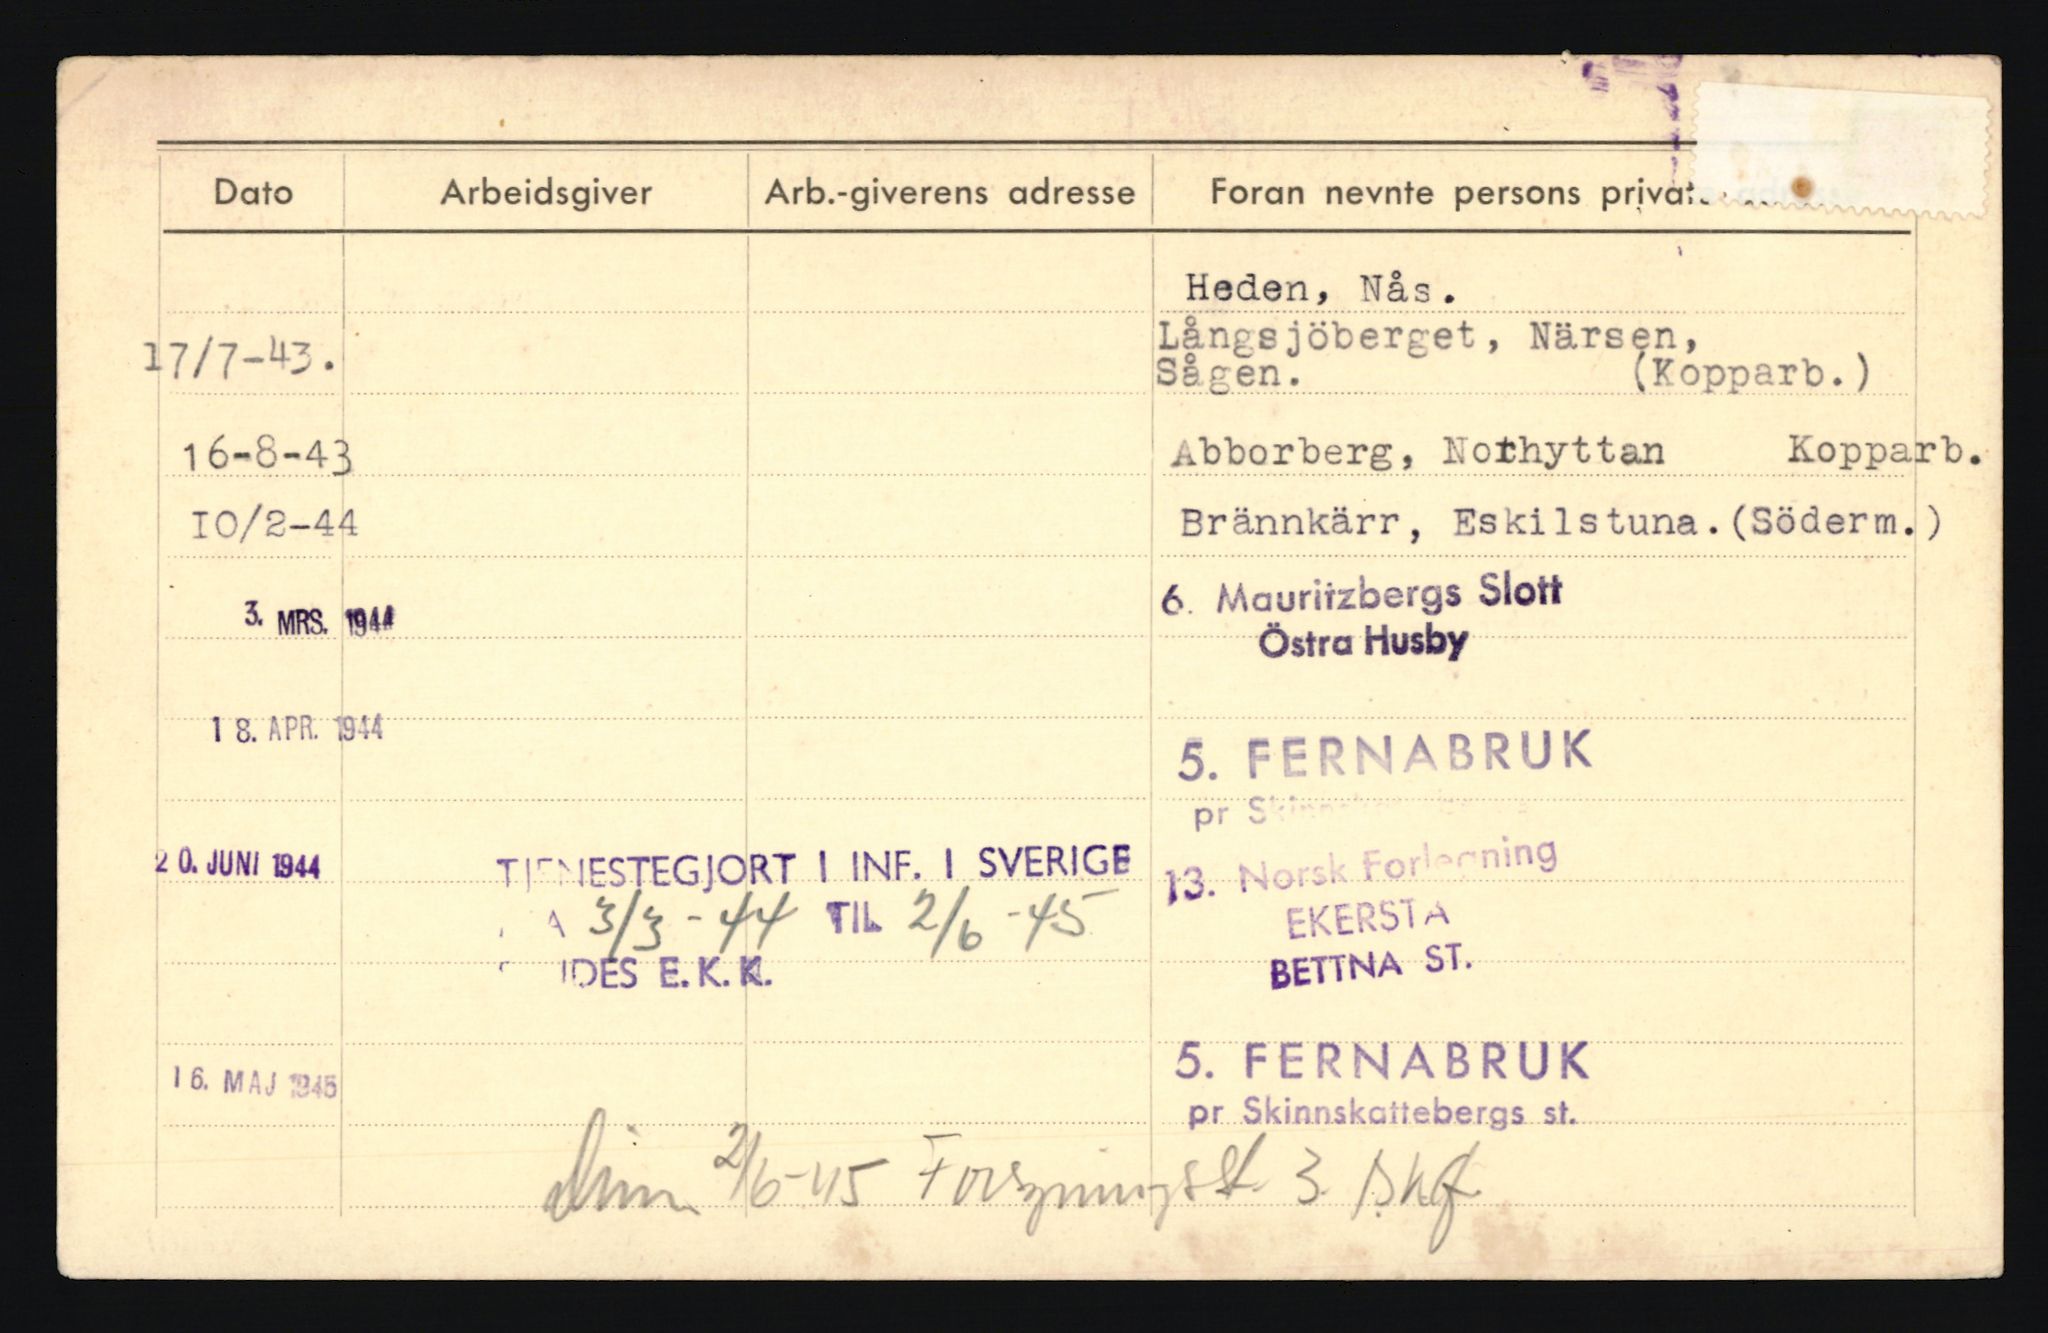 Dato Arbeidsgiver Arb.-giverens adresse Foran nevnte persons privat
Heden, Nås.
17/7-43. Långsjöberget, Närsen,
Sågen. (Kopparb.)
16-8-43 Abborberg, Norhyttan Kopparb.
10/2-44 Brännkärr, Eskilstuna.(Söderm.)
3. MRS. 1944 6. Mauritzbergs Slott
Östra Husby
18. APR. 1944 5. FERNABRUK
pr
20. JUNI 1944 TJENESTEGJORT I INF. I SVERIGE 13. Norsk Forlegning
3/3-44 TIL 2/6-45 EKERSTA
E.K.K. BETTNA ST.
16. MAJ 1945 5. FERNABRUK
pr Skinnskattebergs st.
Dim. 2/6-45 3.